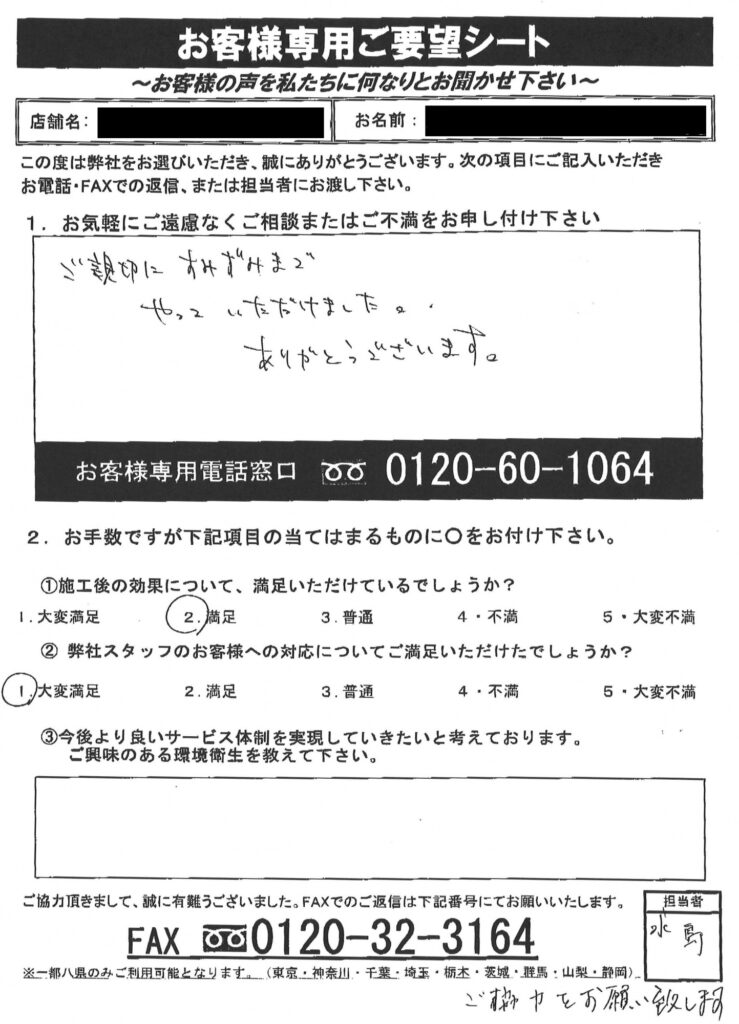 お客様専用ご要望シート
～お客様の声を私たちに何なりとお聞かせ下さい～
店舗名：
お名前：
この度は弊社をお選びいただき、誠にありがとうございます。次の項目にご記入いただき
お電話・FAXでの返信、または担当者にお渡し下さい。
1．お気軽にご遠慮なくご相談またはご不満をお申し付け下さい
ご親切にすみずみまで
やっていただけました。
ありがとうございます。
お客様専用電話窓口 0120-60-1064
2．お手数ですが下記項目の当てはまるものに〇をお付け下さい。
①施工後の効果について、満足いただけているでしょうか？
1.大変満足 2.満足 3.普通 4・不満 5・大変不満
② 弊社スタッフのお客様への対応についてご満足いただけたでしょうか？
1.大変満足 2.満足 3.普通 4・不満 5・大変不満
③今後より良いサービス体制を実現していきたいと考えております。
ご興味のある環境衛生を教えて下さい。
ご協力頂きまして、誠に有難うございました。FAXでのご返信は下記番号にてお願いいたします。
FAX 0120-32-3164
※一部八県のみご利用可能となります。（東京・神奈川・千葉・埼玉・栃木・茨城・群馬・山梨・静岡）
担当者
水島
ご協力をお願い致します